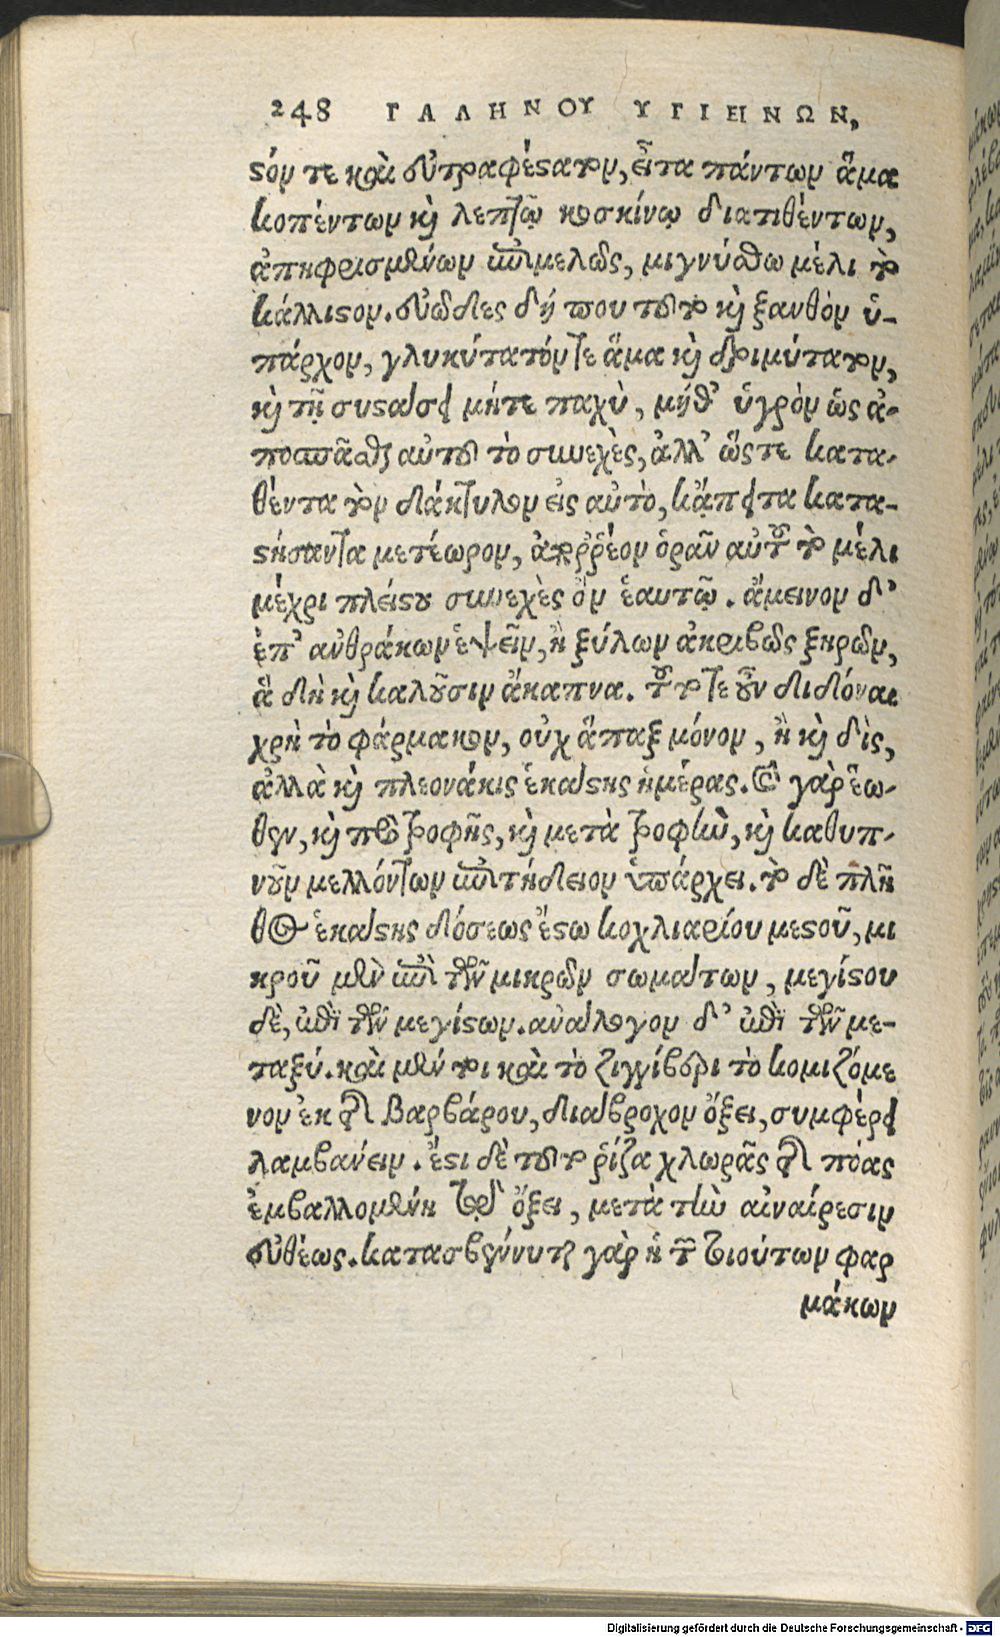 248 ΓΑΛΗΝΟΥ ΥΓΙΕΙΝΩΝ,
στόν τε καὶ εὐτραφέστατον, εἶτα πάντων ἅμα
κοπέντων καὶ λεπτῷ κοσκίνῳ διαττηθέντων,
ἀπηκριβωμένων ἐπιμελῶς, μιγνύσθω μέλι τὸ
κάλλιστον. εὐῶδες δή που τοῦτο καὶ ξανθὸν ὑ-
πάρχον, γλυκύτατόν τε ἅμα καὶ δριμύτατον,
καὶ τῇ συστάσει μήτε παχὺ, μήθ' ὑγρὸν ὡς ἀ-
ποσπᾶσθαι αὐτοῦ τὸ συνεχὲς, ἀλλ' ὥστε κατα-
θέντα τὸν δάκτυλον εἰς αὐτὸ, κἄπειτα κατα-
στήσαντα μετέωρον, ἀποῤῥέον ὁρᾶν αὐτοῦ τὸ μέλι
μέχρι πλείστου συνεχὲς ὂν ἑαυτῷ. ἄμεινον δ'
ἐπ' ἀνθράκων ἑψεῖν, ἢ ξύλων ἀκριβῶς ξηρῶν,
ἃ δὴ καὶ καλοῦσιν ἄκαπνα. τοῦτό τε οὖν διδόναι
χρὴ τὸ φάρμακον, οὐχ ἅπαξ μόνον, ἢ καὶ δὶς,
ἀλλὰ καὶ πλεονάκις ἑκάστης ἡμέρας. καὶ γὰρ ἕω-
θεν, καὶ πρὸ τροφῆς, καὶ μετὰ τροφὴν, καὶ καθυπ-
νοῦν μελλόντων ἐπιτήδειον ὑπάρχει. τὸ δὲ πλῆ
θος ἑκάστης δόσεως ἔστω κοχλιαρίου μεστοῦ, μι
κροῦ μὲν ἐπὶ τῶν μικρῶν σωμάτων, μεγίστου
δὲ, ἐπὶ τῶν μεγίστων. ἀνάλογον δ' ἐπὶ τῶν με-
ταξύ. καὶ μέν τοι καὶ τὸ ζιγγίβερι τὸ κομιζόμε
νον ἐκ τῆς Βαρβάρου, διάβροχον ὄξει, συμφέρει
λαμβάνειν. ἔστι δὲ τοῦτο ῥίζα χλωρᾶς τῆς πόας
ἐμβαλλομένη τῷ ὄξει, μετὰ τὴν ἀναίρεσιν
εὐθέως. κατασβέννυται γὰρ ἡ τῶν τοιούτων φαρ
μάκων